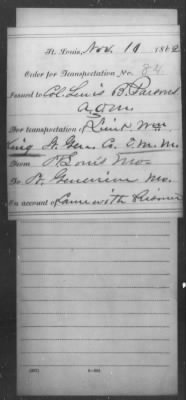 St. Louis, Nov. 10 1862
Order for Transportation No. 84
Issued to Col. Lewis B. Parsons
A.Q.M.
For transportation of Lieut Wm
King St. Gen. Co. E.M.M.
From St Louis Mo.
To St. Genevieve Mo.
On account of Came with Prisoner